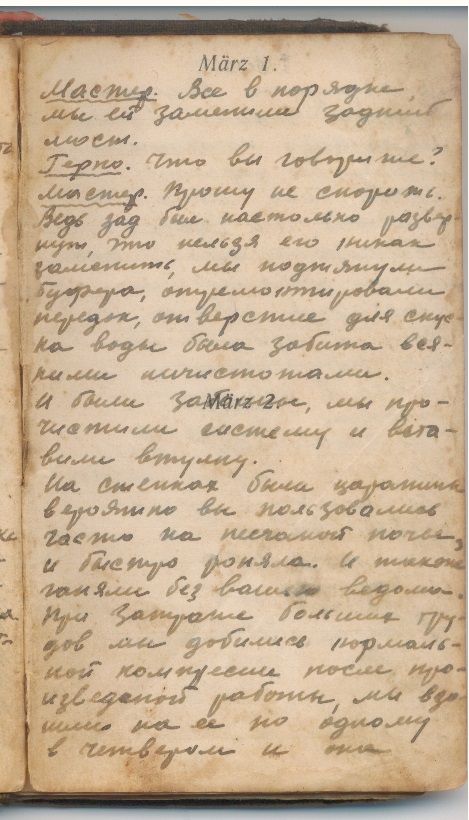 März 1.
Мастер. Все в порядке,
мы ей заменили задний
мост.
Герпо. Что вы говорите?
Мастер. Прошу не спорить.
Ведь зад был настолько развер-
нут, что нельзя его никак
заменить, мы подтянули
буфера, отремонтировали
передок, отверстие для спус-
ка воды была забита вся-
кими ничистотами.
И были
März 2.
мы про-
чистили систему и вста-
вили втулку.
На стенках были царапины
вероятно вы пользовались
часто на песчаной почве,
и быстро
гоняли без вашего ведома.
При затрате больших тру-
дов мы добились нормаль-
ной компресии после про-
изведеной работы, мы взо-
шли на ее по одному
в четвером и она